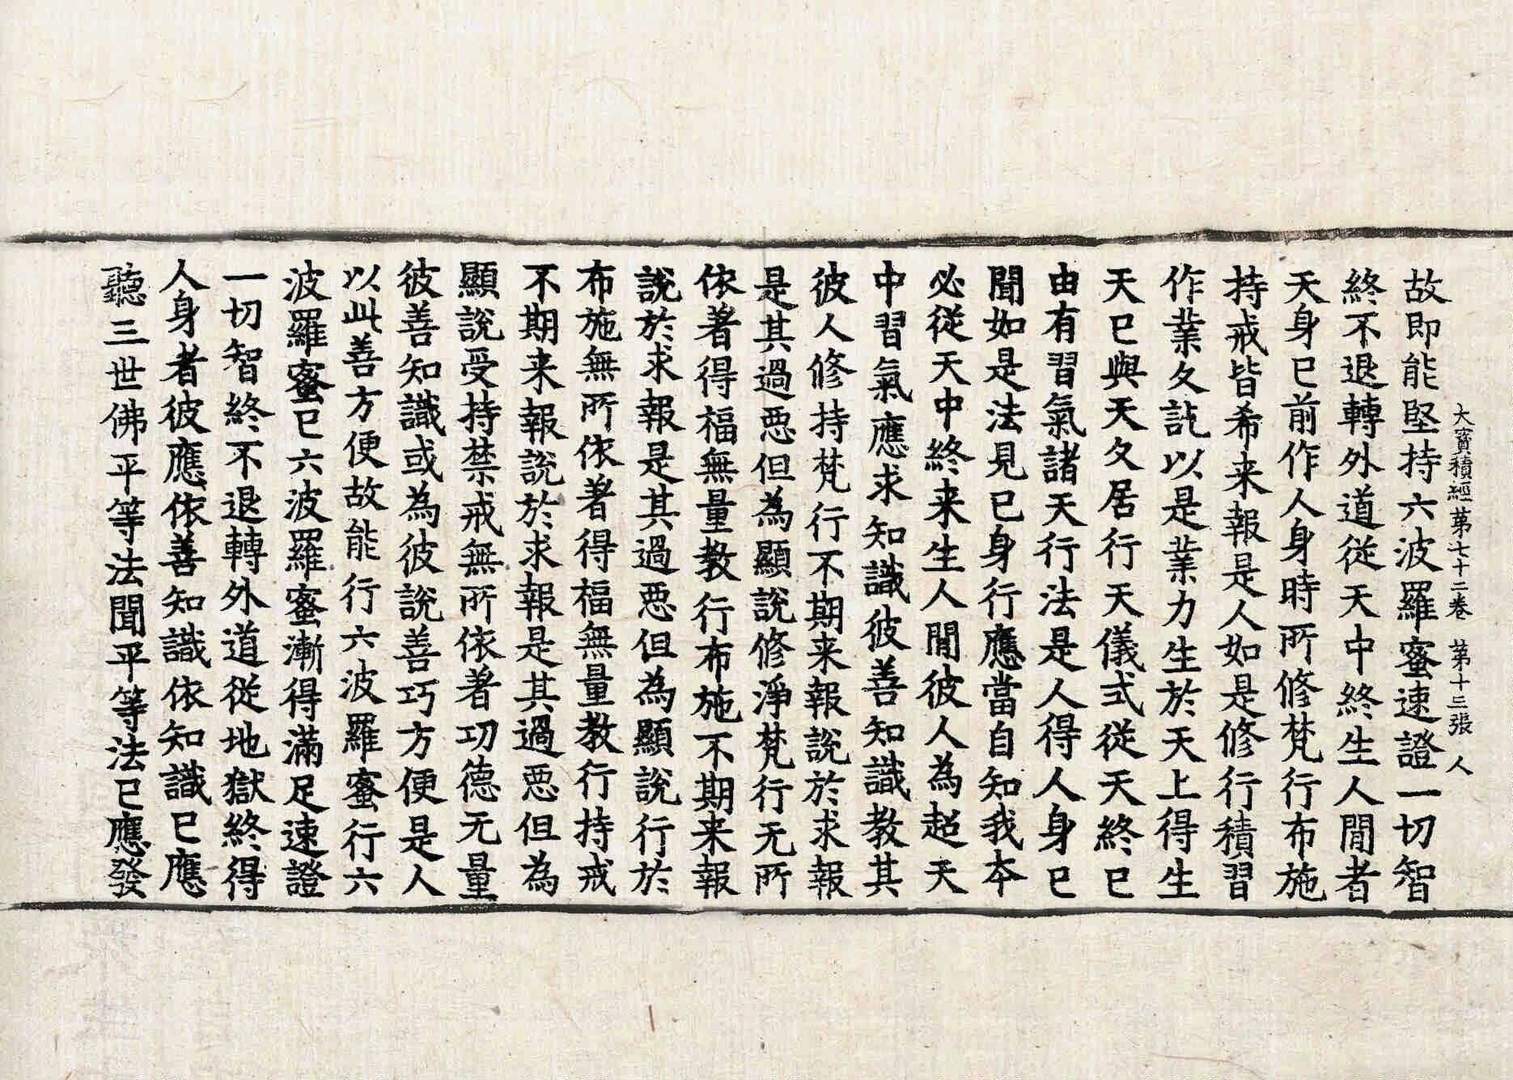 大寳積經第七十二卷　第十三張　人
故即能堅持六波羅蜜速證一切智
終不退轉外道従天中終生人閒者
天身已前作人身時所修梵行布施
持戒皆希来報是人如是修行積習
作業久訖以是業力生於天上得生
天已與天久居行天儀式従天終已
由有習氣諸天行法是人得人身已
聞如是法見已身行應當自知我本
必従天中終来生人閒彼人為超天
中習氣應求知識彼善知識教其
彼人修持梵行不期来報說於求報
是其過悪但為顯說修淨梵行无所
依著得福無量教行布施不期来報
說於求報是其過悪但為顯說行於
布施無所依著得福無量教行持戒
不期来報說於求報是其過悪但為
顯說受持禁戒無所依著功德无量
彼善知識或為彼說善巧方便是人
以此善方便故能行六波羅蜜行六
波羅蜜已六波羅蜜漸得滿足速證
一切智終不退轉外道従地獄終得
人身者彼應依善知識依知識已應
聽三世佛平等法聞平等法已應發